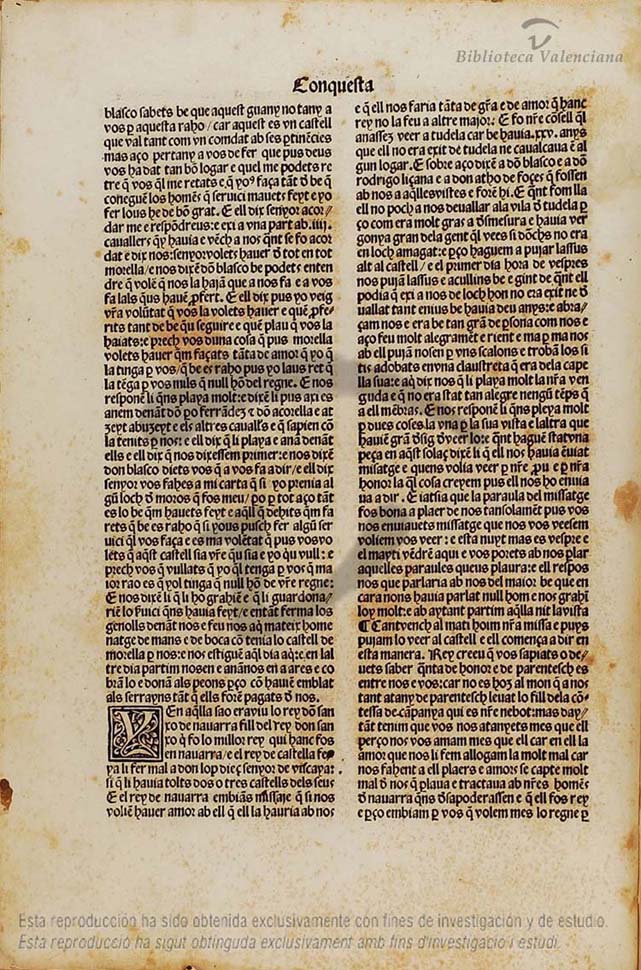 Biblioteca Valenciana
Conquesta
blasco sabets be que aquest guany no tany a
vos p aquesta raho / car aquest es vn castell
que val tant com vn comdat ab ses ptinẽcies
mas aço pertany a vos de fer que pus deus
vos ha dat tan bõ logar e quel me podets re
tre q̃ vos q̃l me retats e q̃ yoꝰ faça tãt ð be q̃
conegué los homés q̃ seruici mauets feyt e yo
fer lous he de bõ grat. E ell dix senyor acor/
dar me e respõdreus: e exi a vna part ab .iiii.
cauallers q̃ y hauia e vẽch a nos q̃nt se fo acor
dat e dix nos: senyor volets hauer ð tot en tot
morella / e nos dixẽ dõ blasco be podets enten
dre q̃ volẽ q̃ nos la hajã que a nos fa e a vos
fa lals qus hauẽ pfert. E ell dix pus yo veig
vr̃a volũtat q̃ vos la volets hauer e quẽ pfe-
rits tant de be q̃u seguire e quẽ plau q̃ vos la
haiats: e prech vos duna cosa q̃ pus morella
volets hauer q̃m façats tãta de amor q̃ yo q̃
la tinga p vos / q̃ be es raho pus yo laus ret q̃
la tẽga p vos mils q̃ null hõ del regne. E nos
responẽ li q̃ns playa molt: e dixẽ li pus axi es
anem denãt dõ po ferrãdez ⁊ dõ acorella e at
zeyt abuzeyt e els altres cauallˢ e q̃ sapien cõ
la tenits p nos: e ell dix q̃ li playa e anã denãt
ells e ell dix q̃ nos dixessem primer: e nos dixẽ
don blasco diets vos q̃ a vos fa a dir / e ell dix
senyor vos fahes a mi carta q̃ si yo prenia al
gũ loch ð moros q̃ fos meu / yo p tot aço tãt
es lo be q̃m hauets feyt e aq̃ll q̃ dehits q̃m fa
rets q̃ be es raho q̃ si yous pusch fer algũ ser
uici q̃l vos faça e es ma volẽtat q̃ pus vos vo
lets q̃ aq̃st castell sia vr̃e q̃u sia e yo q̃u vull: e
prech vos q̃ vullats q̃ yo q̃l tenga p vos q̃ ma
ior rao es q̃ yol tinga q̃ null hõ de vr̃e regne:
E nos dixẽ li q̃ li ho grahiẽ e q̃ li guardona/
riẽ lo ẞuici q̃ns hauia feyt / e entãt ferma los
genolls denãt nos e feu nos aq̃ mateix home
natge de mans e de boca cõ tenia lo castell de
morella p nos: e nos estiguẽ aq̃l dia aq̃: e en lal
tre dia partim nosen e anãnos en a ares e co
brã lo e donã als peons pço cõ hauiẽ emblat
als serrayns tãt q̃ ells forẽ pagats ð nos.
VEn aq̃lla sao eraviu lo rey dõ san
xo de nauarra fill del rey don san
xo q̃ fo lo millor rey qui hanc fos
en nauarra / e el rey de castella fe
ya li fer mal a don lop diez senyor de viscaya:
si q̃ li hauia tolts dos o tres castells dels seus
E el rey de nauarra embiãs missaje q̃ si nos
voliẽ hauer amor ab ell q̃ ell la hauria ab nos
e q̃ ell nos faria tãta de gr̃a e de amor q̃ hanc
rey no la feu a altre major. E fo nr̃e cõsell q̃l
anassez veer a tudela car be hauia .xxv. anys
que ell no era exit de tudela ne caualcaua ẽ al
gun logar. E sobre aço dixẽ a dõ blasco e a dõ
rodrigo liçana e a don atho de foçes q̃ fossen
ab nos a aq̃llesvistes e forẽ hi. E q̃nt fom lla
ell no poch a nos deuallar ala vila ð tudela p
ço com era molt gras a ðsmesura e hauia ver
gonya gran dela gent q̃l vees si dõchs no era
en loch amagat: e pço haguem a pujar lassus
alt al castell / e el primer dia hora de vespres
nos pujã lassus e acullins be e gint de q̃nt ell
podia q̃ exi a nos de loch hon no era exit ne ð
uallat tant enius be hauia deu anys: e abra/
çam nos e era be tan grã de psona com nos e
aço feu molt alegramẽt e rient e ma p ma nos
ab ell pujã nosen p vns scalons e trobã los si
tis adobats en vna claustreta q̃ era dela cape
lla sua: e aq̃ dix nos q̃ li playa molt la nr̃a ven
guda e q̃ no era stat tan alegre nengũ tẽps q̃
a ell mẽbras. E nos responẽ li q̃ns pleya molt
p dues coses. la vna p la sua vista e laltra que
hauiẽ grã ðsig ðveer lo: e q̃nt hagué stat vna
peça en aq̃st solaç dixẽ li q̃ ell nos hauia ẽuiat
misatge e quens volia veer p nr̃e pu e p nr̃a
honor la q̃l cosa creyem pus ell nos ho enuia
ua a dir. E iatsia que la paraula del missatge
fos bona a plaer de nos tansolament pus vos
nos enuiauets missatge que nos vos veesem
voliem vos veer: e esta nuyt mas es vespre e
el mayti vẽdrẽ aqui e vos porets ab nos plar
aquelles paraules queus plaura: e ell respos
nos que parlaria ab nos del maior be que en
cara nons hauia parlat null hom e nos grahĩ
loy molt: e ab aytant partim aq̃lla nit la vista
¶ Cantvench al mati hoim nr̃a missa e puys
pujam lo veer al castell e ell comença a dir en
esta manera. Rey creeu q̃ vos sapiats o de/
uets saber q̃nta de honor e de parentesch es
entre nos e vos: car no es hoz al mon q̃ a nos
tant atany de parentesch leuat lo fill dela cõ-
tessa de cãpanya qui es nr̃e nebot: mas day/
tãt tenim que vos nos atanyets mes que ell
per ço nos vos amam mes que ell car en ell la
amor que nos li fem allogam la molt mal car
nos fahent a ell plaers e amors se capte molt
mal ð nos q̃ plaua e tractaua ab nr̃es homẽs
ð nauarra q̃ns ðsapoderassen e q̃ ell fos rey
e pço embiam p vos q̃ volem mes lo regne p
Esta reproducción ha sido obtenida exclusivamente con fines de investigación y de estudio.
Esta reproducció ha sigut obtinguda exclusivament amb fins d'investigació i estudi.